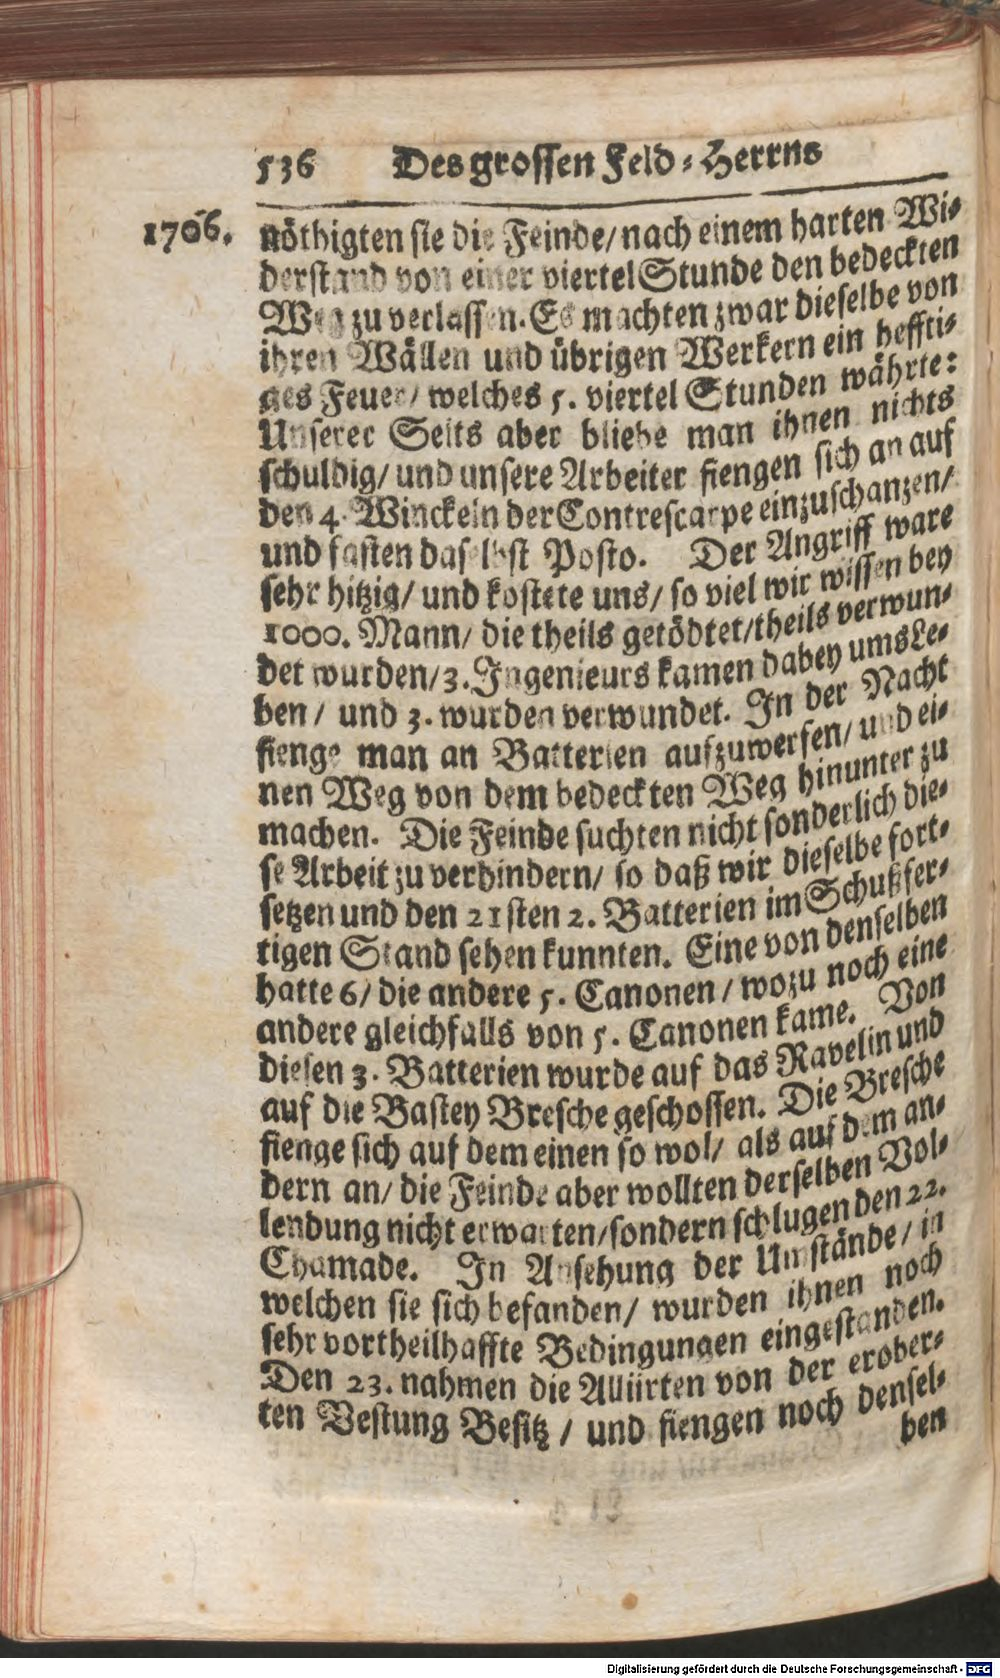 536 Des grossen Feld-Herrns
1706. nöthigten sie die Feinde/ nach einem harten Wi-
derstand von einer viertel Stunde den bedeckten
Weg zu verlassen. Es machten zwar dieselbe von
ihren Wällen und übrigen Werkern ein heffti-
ges Feuer/ welches 5. viertel Stunden währte:
Unserer Seits aber bliebe man ihnen nichts
schuldig/ und unsere Arbeiter fiengen sich an auf
den 4. Winckeln der Contrescarpe einzuschanzen/
und fasten daselbst Posto. Der Angriff ware
sehr hitzig/ und kostete uns/ so viel wir wissen bey
1000. Mann/ die theils getödtet/ theils verwun-
det wurden/ 3. Ingenieurs kamen dabey ums Le-
ben/ und 3. wurden verwundet. In der Nacht
fienge man an Batterien aufzuwerfen/ und ei-
nen Weg von dem bedeckten Weg hinunter zu
machen. Die Feinde suchten nicht sonderlich die-
se Arbeit zu verhindern/ so daß wir dieselbe fort-
setzen und den 21sten 2. Batterien im Schußfer-
tigen Stand sehen kunnten. Eine von denselben
hatte 6/ die andere 5. Canonen/ wozu noch eine
andere gleichfalls von 5. Canonen kame. Von
diesen 3. Batterien wurde auf das Ravelin und
auf die Bastey Bresche geschossen. Die Bresche
fienge sich auf dem einen so wol/ als auf dem an-
dern an/ die Feinde aber wollten derselben Vol-
lendung nicht erwarten/ sondern schlugen den 22.
Chamade. In Ansehung der Umstände/ in
welchen sie sich befanden/ wurden ihnen noch
sehr vortheilhaffte Bedingungen eingestanden.
Den 23. nahmen die Alliirten von der erober-
ten Vestung Besitz/ und fiengen noch densel-
ben
Digitalisierung gefördert durch die Deutsche Forschungsgemeinschaft - DFG